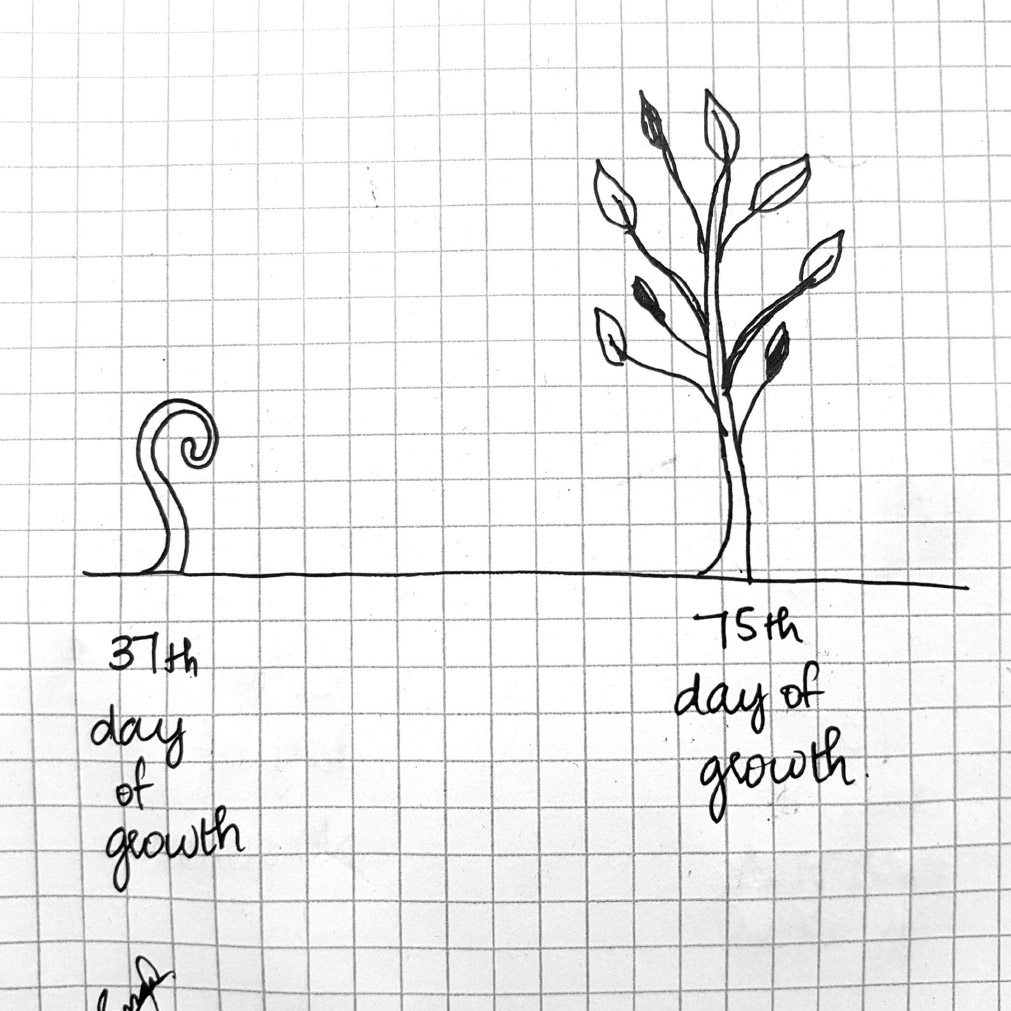 37th
day
of
growth
75th
day of
growth.